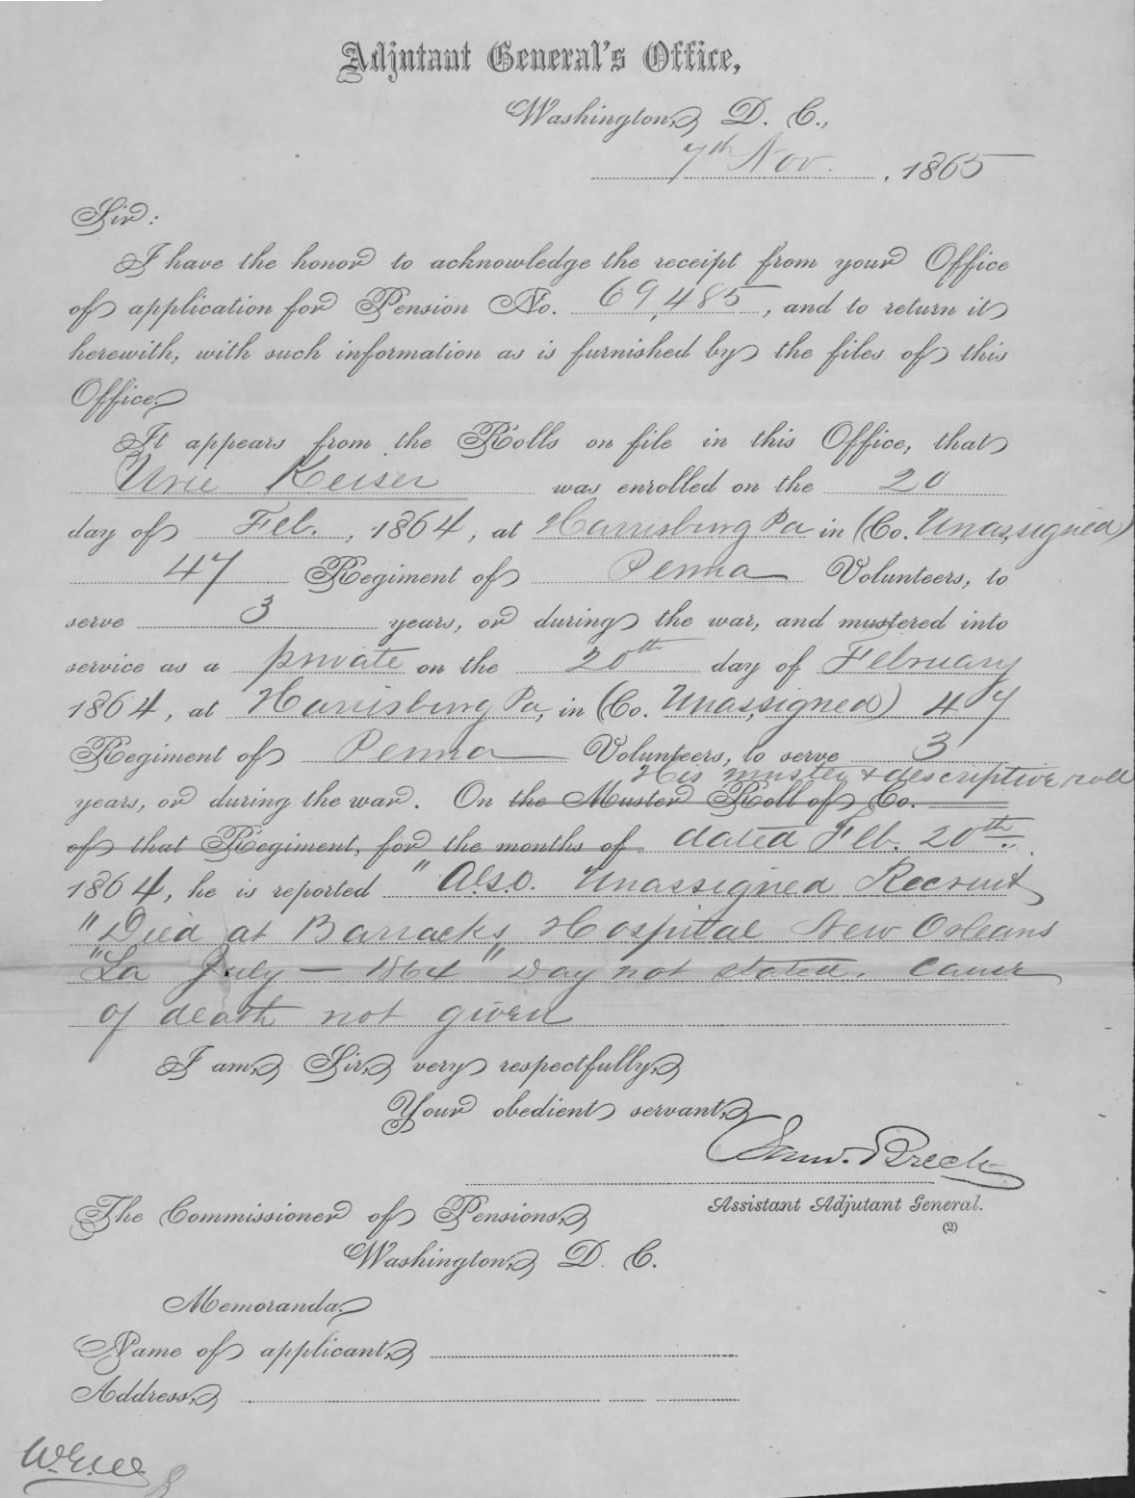 Adjutant General's Office,
Washington, D. C.,
7th Nov. , 1865
Sir:
I have the honor to acknowledge the receipt from your Office
of application for Pension No. 69,485, and to return it
herewith, with such information as is furnished by the files of this
Office.
It appears from the Rolls on file in this Office, that
Urie Keiser was enrolled on the 20
day of Feb. , 1864, at Harrisburg Pa in (Co. Unassigned)
47 Regiment of Penna Volunteers, to
serve 3 years, or during the war, and mustered into
service as a private on the 20th day of February
1864, at Harrisburg Pa, in (Co. Unassigned) 47
Regiment of Penna Volunteers, to serve 3
His muster & descriptive roll
years, or during the war. On the Muster Roll of Co.
of that Regiment, for the months of dated Feb. 20th
1864, he is reported "Also. Unassigned Recruit
"Died at Barracks Hospital New Orleans
"La July — 1864" Day not stated. Cause
of death not given
I am, Sir, very respectfully,
Your obedient servant,
Sam. Breck
Assistant Adjutant General.
(2)
The Commissioner of Pensions,
Washington, D. C.
Memoranda.
Name of applicant,
Address,